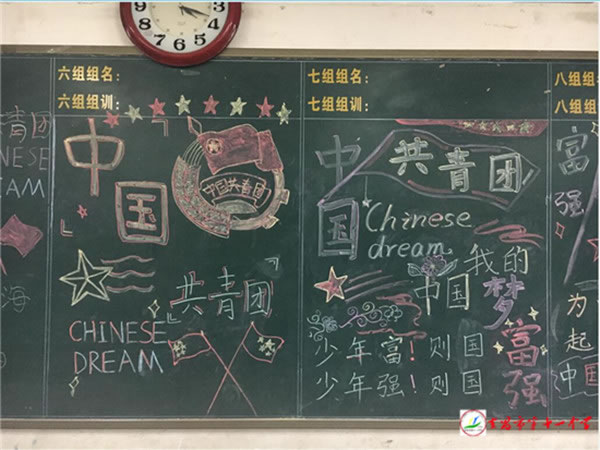 六组组名：
六组组训：
中国
中国共青团
『共青团』
CHINESE
DREAM
七组组名：
七组组训：
中国
共青团
Chinese
dream
我的
中国梦
少年富！则国富
少年强！则国强
八组组名
八组组
富强
为
起
中国
青团
NESE
DREAM
海